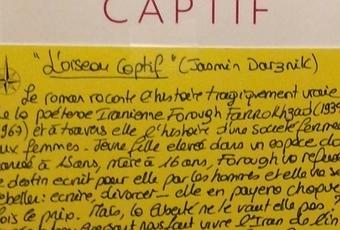 CAPTIF
"L'oiseau Captif" (Jasmin Darznik)
Le roman raconte l'histoire tragiquement vraie
de la poétesse Iranienne Forough FARROKHzad (193
1967) et à travers elle l'histoire d'une société fermée
aux femmes. Jeune fille élevée dans un espace clo
mariée à 15 ans, mère à 16 ans, Forough va refuse
le destin écrit pour elle par les hommes et elle va se
rebeller: écrire, divorcer... elle en payera chaque
fois le prix. Mais, la liberté ne le vaut elle pas ?
nous fait vivre l'Iran de l'in